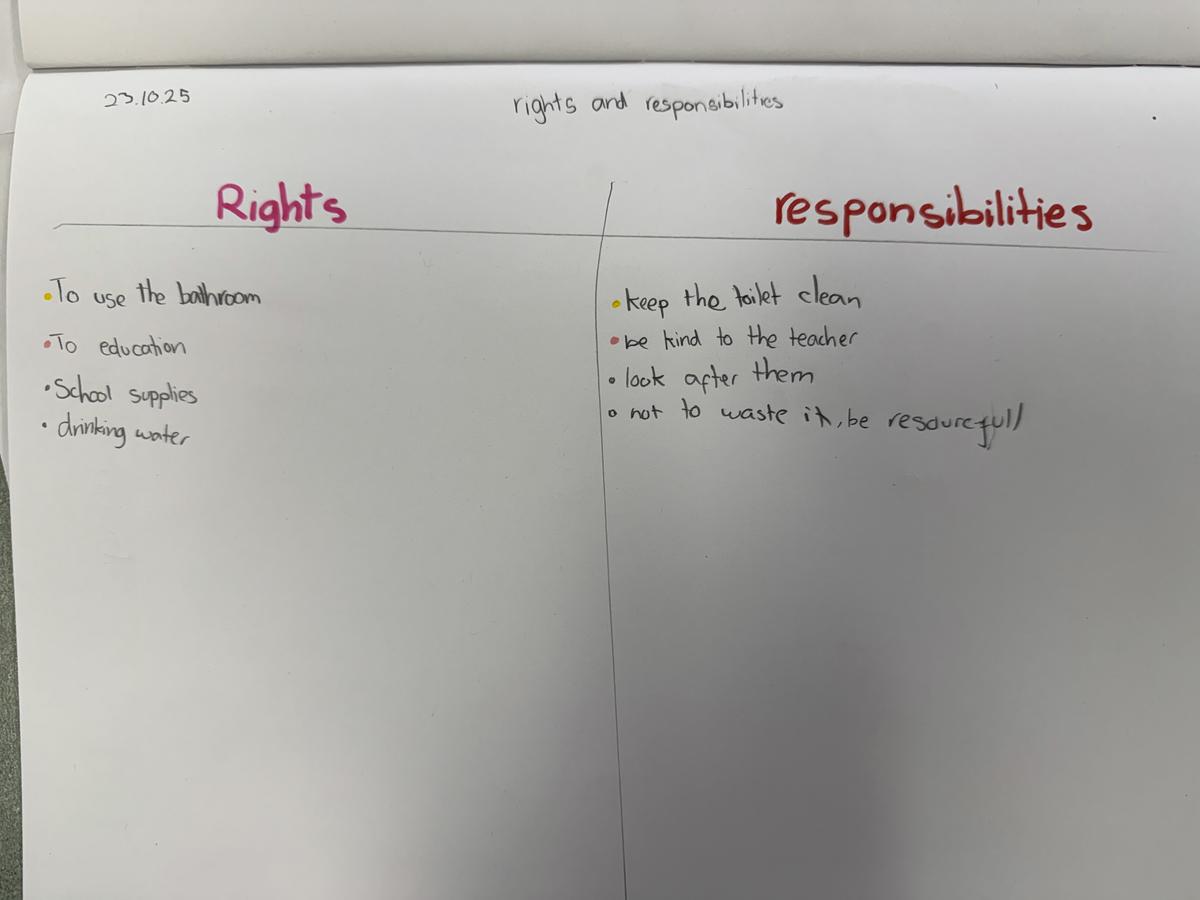 23.10.25
rights and responsibilities
Rights
responsibilities
• To use the bathroom
• To education
• School supplies
• drinking water
• keep the toilet clean
• be kind to the teacher
• look after them
• not to waste it, be resourcefull